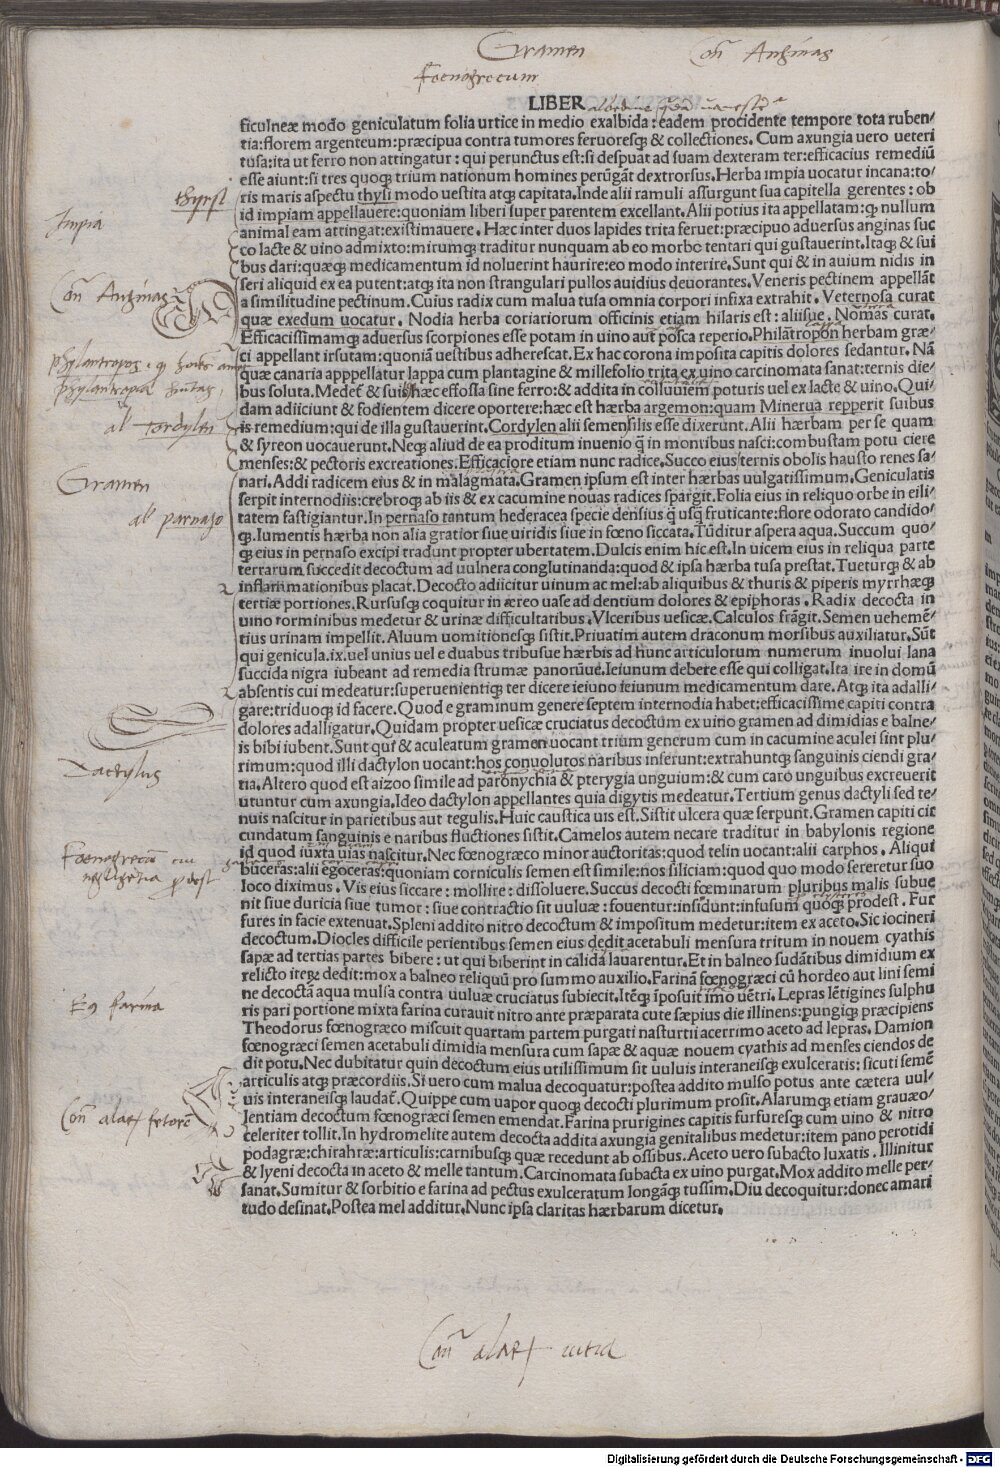 Gramen
Con Anginas
Foenogrecum
LIBER
ficulneæ modo geniculatum folia urtice in medio exalbida: eadem procidente tempore tota ruben/
tia: florem argenteum: præcipua contra tumores feruoresq; & collectiones. Cum axungia uero ueteri
tusa: ita ut ferro non attingatur: qui perunctus est: si despuat ad suam dexteram ter: efficacius remediū
esse aiunt: si tres quoq; trium nationum homines perūgāt dextrorsus. Herba impia uocatur incana: to/
ris maris aspectu thysi modo uestita atq; capitata. Inde alii ramuli assurgunt sua capitella gerentes: ob
id impiam appellauere: quoniam liberi super parentem excellant. Alii potius ita appellatam: q; nullum
animal eam attingat: existimauere. Hæc inter duos lapides trita feruet: præcipuo aduersus anginas suc
co lacte & uino admixto: mirumq; traditur nunquam ab eo morbo tentari qui gustauerint. Itaq; & sui
bus dari: quæq; medicamentum id noluerint haurire: eo modo interire. Sunt qui & in auium nidis in
seri aliquid ex ea putent: atq; ita non strangulari pullos auidius deuorantes. Veneris pectinem appellāt
a similitudine pectinum. Cuius radix cum malua tusa omnia corpori infixa extrahit. Veternosa curat
quæ exedum uocatur. Nodia herba coriariorum officinis etiam hilaris est: aliisue. Nomas curat.
Efficacissimamq; aduersus scorpiones esse potam in uino aut posca reperio. Philātropon herbam græ/
ci appellant irsutam: quoniā uestibus adherescat. Ex hac corona imposita capitis dolores sedantur. Nā
quæ canaria apppellatur lappa cum plantagine & millefolio trita ex uino carcinomata sanat: ternis die/
bus soluta. Medet & suib; hæc effossa sine ferro: & addita in colluuiem poturis uel ex lacte & uino. Qui/
dam adiiciunt & fodientem dicere oportere: hæc est hærba argemon: quam Minerua repperit suibus
is remedium: qui de illa gustauerint. Cordylen alii semensilis esse dixerunt. Alii hærbam per se quam
& syreon uocauerunt. Neq; aliud de ea proditum inuenio q̄ in montibus nasci: combustam potu ciere
menses: & pectoris excreationes. Efficaciore etiam nunc radice. Succo eius ternis obolis hausto renes sa/
nari. Addi radicem eius & in malagmata. Gramen ipsum est inter hærbas uulgatissimum. Geniculatis
serpit internodiis: crebroq; ab iis & ex cacumine nouas radices spargit. Folia eius in reliquo orbe in eili/
tatem fastigiantur. In pernaso tantum hederacea specie densius q̄ usq̄ fruticante: flore odorato candido/
q;. Iumentis hærba non alia gratior siue uiridis siue in fœno siccata. Tūditur aspera aqua. Succum quo/
q; eius in pernaso excipi tradunt propter ubertatem. Dulcis enim hic est. In uicem eius in reliqua parte
terrarum succedit decoctum ad uulnera conglutinanda: quod & ipsa hærba tusa prestat. Tueturq; & ab
inflammationibus placat. Decocto adiicitur uinum ac mel: ab aliquibus & thuris & piperis myrrhæq;
tertiæ portiones. Rursusq; coquitur in æreo uase ad dentium dolores & epiphoras. Radix decocta in
uino torminibus medetur & urinæ difficultatibus. Vlceribus uesicæ. Calculos frāgit. Semen uehemē/
tius urinam impellit. Aluum uomitionesq; sistit. Priuatim autem draconum morsibus auxiliatur. Sūt
qui genicula .ix. uel unius uel e duabus tribusue hærbis ad hunc articulorum numerum inuolui lana
succida nigra iubeant ad remedia strumæ panorūue. Ieiunum debere esse qui colligat. Ita ire in domū
absentis cui medeatur: superuenientiq; ter dicere ieiuno ieiunum medicamentum dare. Atq; ita adalli/
gare: triduoq; id facere. Quod e graminum genere septem internodia habet: efficacissime capiti contra
dolores adalligatur. Quidam propter uesicæ cruciatus decoctum ex uino gramen ad dimidias e balne/
is bibi iubent. Sunt qui & aculeatum gramen uocant trium generum cum in cacumine aculei sint plu/
rimum: quod illi dactylon uocant: hos conuolutos naribus inserunt: extrahuntq; sanguinis ciendi gra/
tia. Altero quod est aizoo simile ad paronychia & pterygia unguium: & cum caro unguibus excreuerit
utuntur cum axungia. Ideo dactylon appellantes quia digytis medeatur. Tertium genus dactyli sed te/
nuis nascitur in parietibus aut tegulis. Huic caustica uis est. Sistit ulcera quæ serpunt. Gramen capiti cir
cundatum sanguinis e naribus fluctiones sistit. Camelos autem necare traditur in babylonis regione
id quod iuxta uias nascitur. Nec fœnogræco minor auctoritas: quod telin uocant: alii carphos. Aliqui
buceras: alii egoceras: quoniam corniculis semen est simile: nos siliciam: quod quo modo sereretur suo
loco diximus. Vis eius siccare: mollire: dissoluere. Succus decocti fœminarum pluribus malis subue
nit siue duricia siue tumor: siue contractio sit uuluæ: fouentur: insidunt: infusum quoq; prodest. Fur
fures in facie extenuat. Spleni addito nitro decoctum & impositum medetur: item ex aceto. Sic iocineri
decoctum. Diocles difficile perientibus semen eius dedit acetabuli mensura tritum in nouem cyathis
sapæ ad tertias partes bibere: ut qui biberint in calida lauarentur. Et in balneo sudātibus dimidium ex
relicto iteꝝ dedit: mox a balneo reliquū pro summo auxilio. Farinā fœnogræci cū hordeo aut lini semi
ne decoctā aqua mulsa contra uuluæ cruciatus subiecit. Itēq; iposuit imo uētri. Lepras lētigines sulphu
ris pari portione mixta farina curauit nitro ante præparata cute sæpius die illinens: pungiq; præcipiens
Theodorus fœnogræco miscuit quartam partem purgati nasturtii acerrimo aceto ad lepras. Damion
fœnogræci semen acetabuli dimidia mensura cum sapæ & aquæ nouem cyathis ad menses ciendos de
dit potu. Nec dubitatur quin decoctum eius utilissimum sit uuluis interaneisq; exulceratis: sicuti semē
articulis atq; præcordiis. Si uero cum malua decoquatur: postea addito mulso potus ante cætera uul/
uis interaneisq; laudat̄. Quippe cum uapor quoq; decocti plurimum prosit. Alarumq; etiam grauæo/
lentiam decoctum fœnogræci semen emendat. Farina prurigines capitis furfuresq; cum uino & nitro
celeriter tollit. In hydromelite autem decocta addita axungia genitalibus medetur: item pano perotidi
podagræ: chirahræ: articulis: carnibusq; quæ recedunt ab ossibus. Aceto uero subacto luxatis. Illinitur
& lyeni decocta in aceto & melle tantum. Carcinomata subacta ex uino purgat. Mox addito melle per/
sanat. Sumitur & sorbitio e farina ad pectus exulceratum longāq; tussim. Diu decoquitur: donec amari
tudo desinat. Postea mel additur. Nunc ipsa claritas hærbarum dicetur.
thyrsi
Impia
Con Anginas
phylantropos
phylantropia
al Cordylen
Gramen
al parnaso
Dactylus
Foenogrecum cui
negligetia prodest
Eius farina
Con alarum fetorem
Con alarum uitia
Digitalisierung gefördert durch die Deutsche Forschungsgemeinschaft - DFG